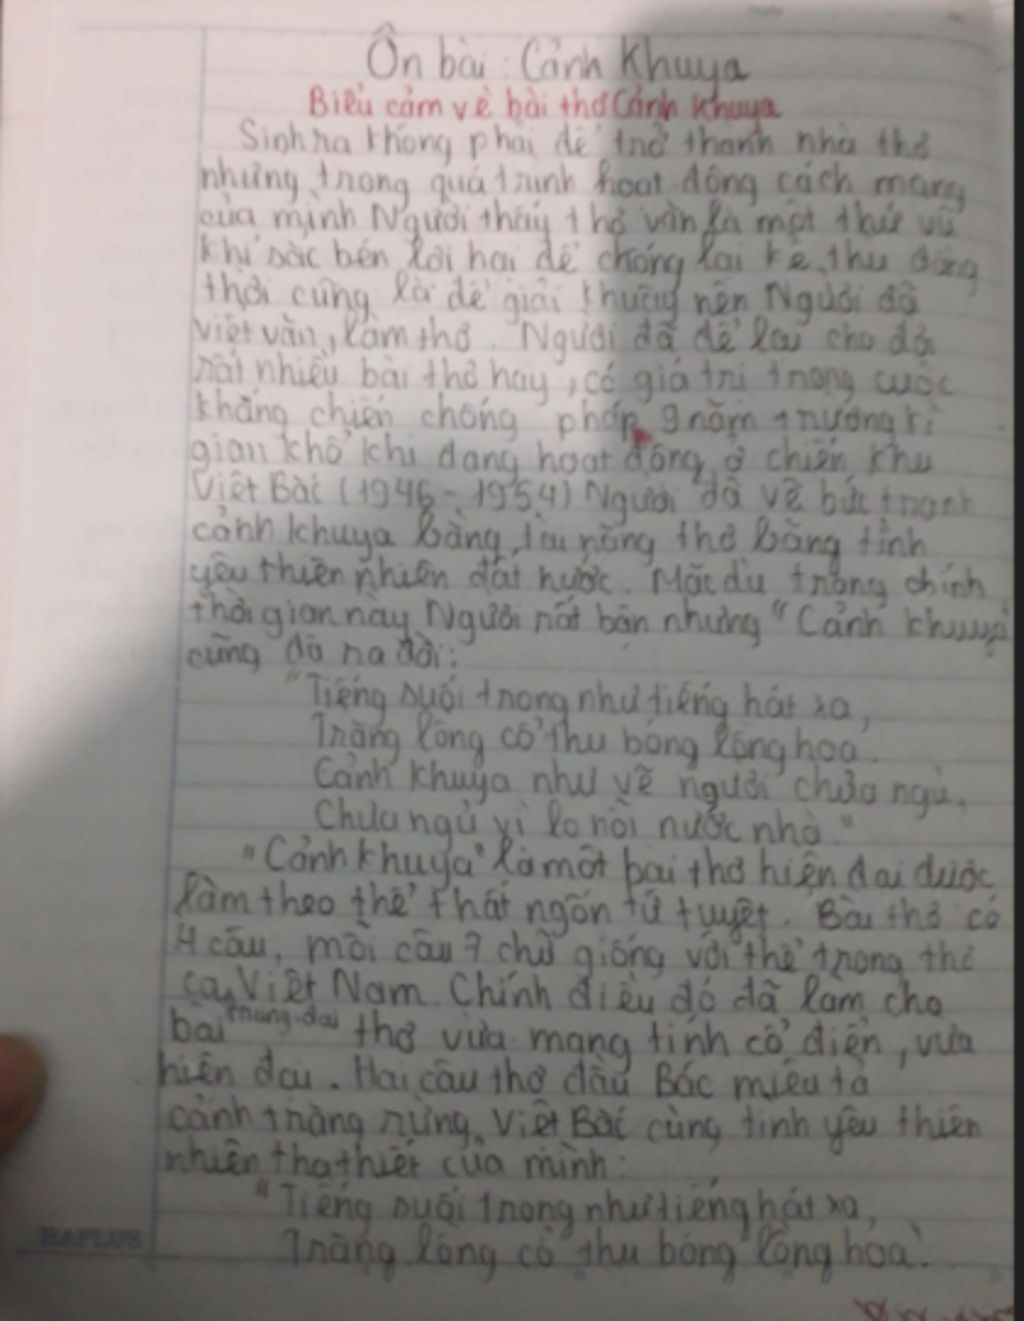 Ôn bài: Cảnh Khuya
Biểu cảm về bài thơ Cảnh khuya
Sinh ra không phải để trở thành nhà thơ
nhưng trong quá trình hoạt động cách mạng
của mình Người thấy thơ văn là một thứ vũ
khí sắc bén lợi hại để chống lại kẻ thù đồng
thời cũng là để giải khuây nên Người đã
viết văn, làm thơ. Người đã để lại cho đời
rất nhiều bài thơ hay, có giá trị trong cuộc
kháng chiến chống pháp 9 năm trường kì
gian khổ khi đang hoạt động ở chiến khu
Việt Bắc (1946 - 1954) Người đã vẽ bức tranh
cảnh khuya bằng tài năng thơ bằng tình
yêu thiên nhiên đất nước. Mặc dù trong chính
thời gian này Người rất bận nhưng "Cảnh khuya"
cũng đã ra đời:
"Tiếng suối trong như tiếng hát xa,
Trăng lồng cổ thụ bóng lồng hoa.
Cảnh khuya như vẽ người chưa ngủ,
Chưa ngủ vì lo nỗi nước nhà."
"Cảnh khuya" là một bài thơ hiện đại được
làm theo thể thất ngôn tứ tuyệt. Bài thơ có
4 câu, mỗi câu 7 chữ giống với thể trong thơ
ca Việt Nam trung đại. Chính điều đó đã làm cho
bài thơ vừa mang tính cổ điển, vừa
hiện đại. Hai câu thơ đầu Bác miêu tả
cảnh trăng rừng Việt Bắc cùng tình yêu thiên
nhiên tha thiết của mình:
"Tiếng suối trong như tiếng hát xa,
Trăng lồng cổ thụ bóng lồng hoa".
HAPLUS